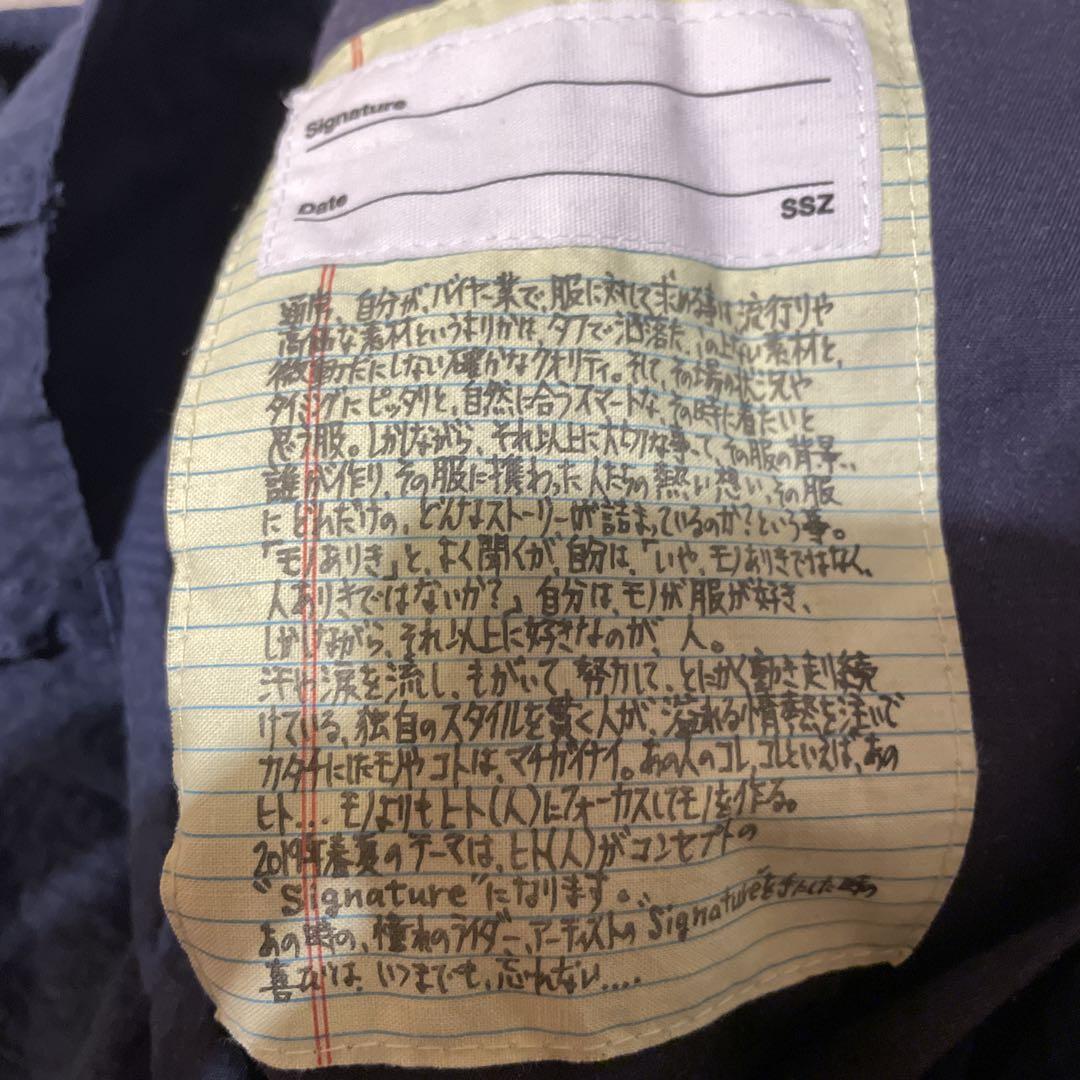 Signature
Date
SSZ
通常、自分が、バイヤー業で、服に対して求める事は流行りや
高価な素材というよりかは、タフで洒落た、この上ない素材と、
微動だにしない確かなクオリティ。そして、その場の状況や
タイミングにピッタリと、自然に合うスマートな、その時に着たいと
思う服。しかしながら、それ以上に大切な事って、その服の背景、
誰が作り、その服に携わった人たちの熱い想い、その服
にどんだけの、どんなストーリーが詰まっているのか?という事。
「モノありき」と、よく聞くが、自分は、「いや、モノありきではなく、
人ありきではないか?」自分は、モノが服が好き、
しかしながら、それ以上に好きなのが、人。
汗や涙を流し、もがいて、努力して、とにかく動き走り続
けている、独自のスタイルを貫く人が、溢れる情熱を注いで
カタチにしたモノやコトは、マチガイナイ。あの人のコレ、コレといえば、あの
ヒト... モノよりもヒト(人)にフォーカスしてモノを作る。
2019年春夏のテーマは、ヒト(人)がコンセプトの
"Signature"になります。
あの時の、憧れのライダー、アーティストの"Signature"を手にした時の
喜びは、いつまでも、忘れない....